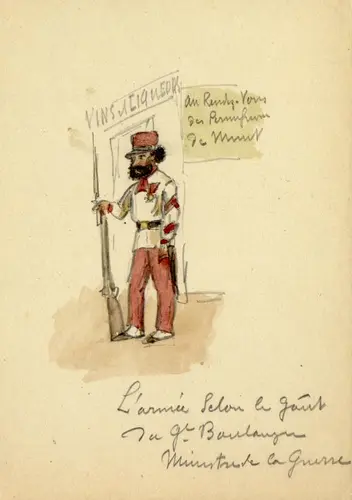 VINS ET LIQUEURS
Au Rendez-Vous
des
de
L'armée selon le goût
du Gl Boulanger
Ministre de la Guerre